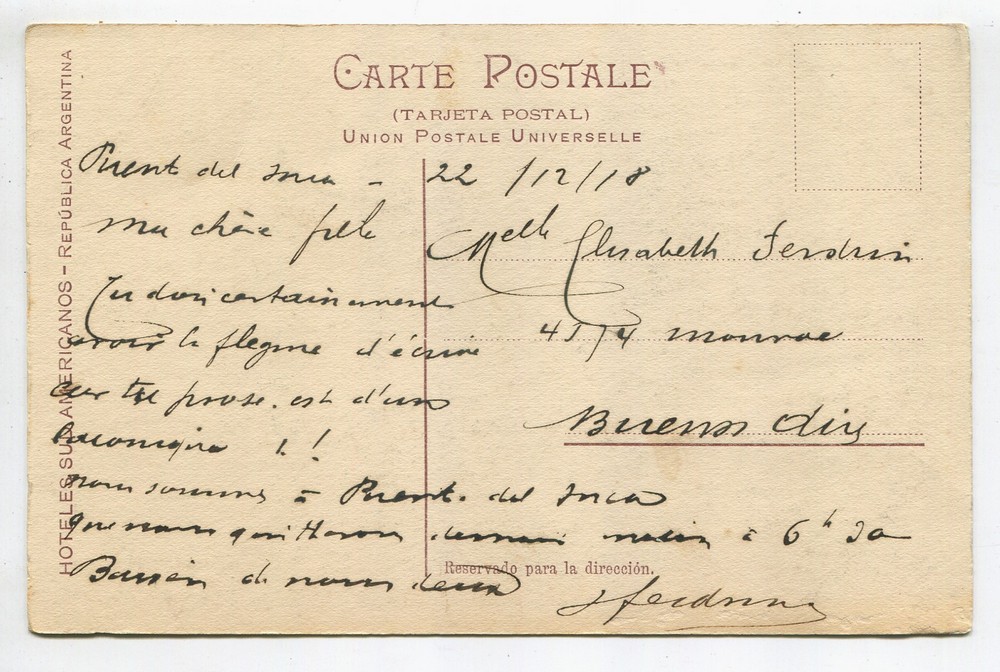 CARTE POSTALE
(TARJETA POSTAL)
UNION POSTALE UNIVERSELLE
HOTELES SUD AMERICANOS - REPÚBLICA ARGENTINA
Puent del Inca - 22/12/18
Ma chère fille
Tu dois certainement
avoir la flegme d'écrire
car ta prose est d'un
!
nous sommes à Puente del Inca
que nous quitterons demain matin à 6h 30
Baisers de nous deux
Melle Elisabeth
4574 Monroe
Buenos Aires
Reservado para la dirección.